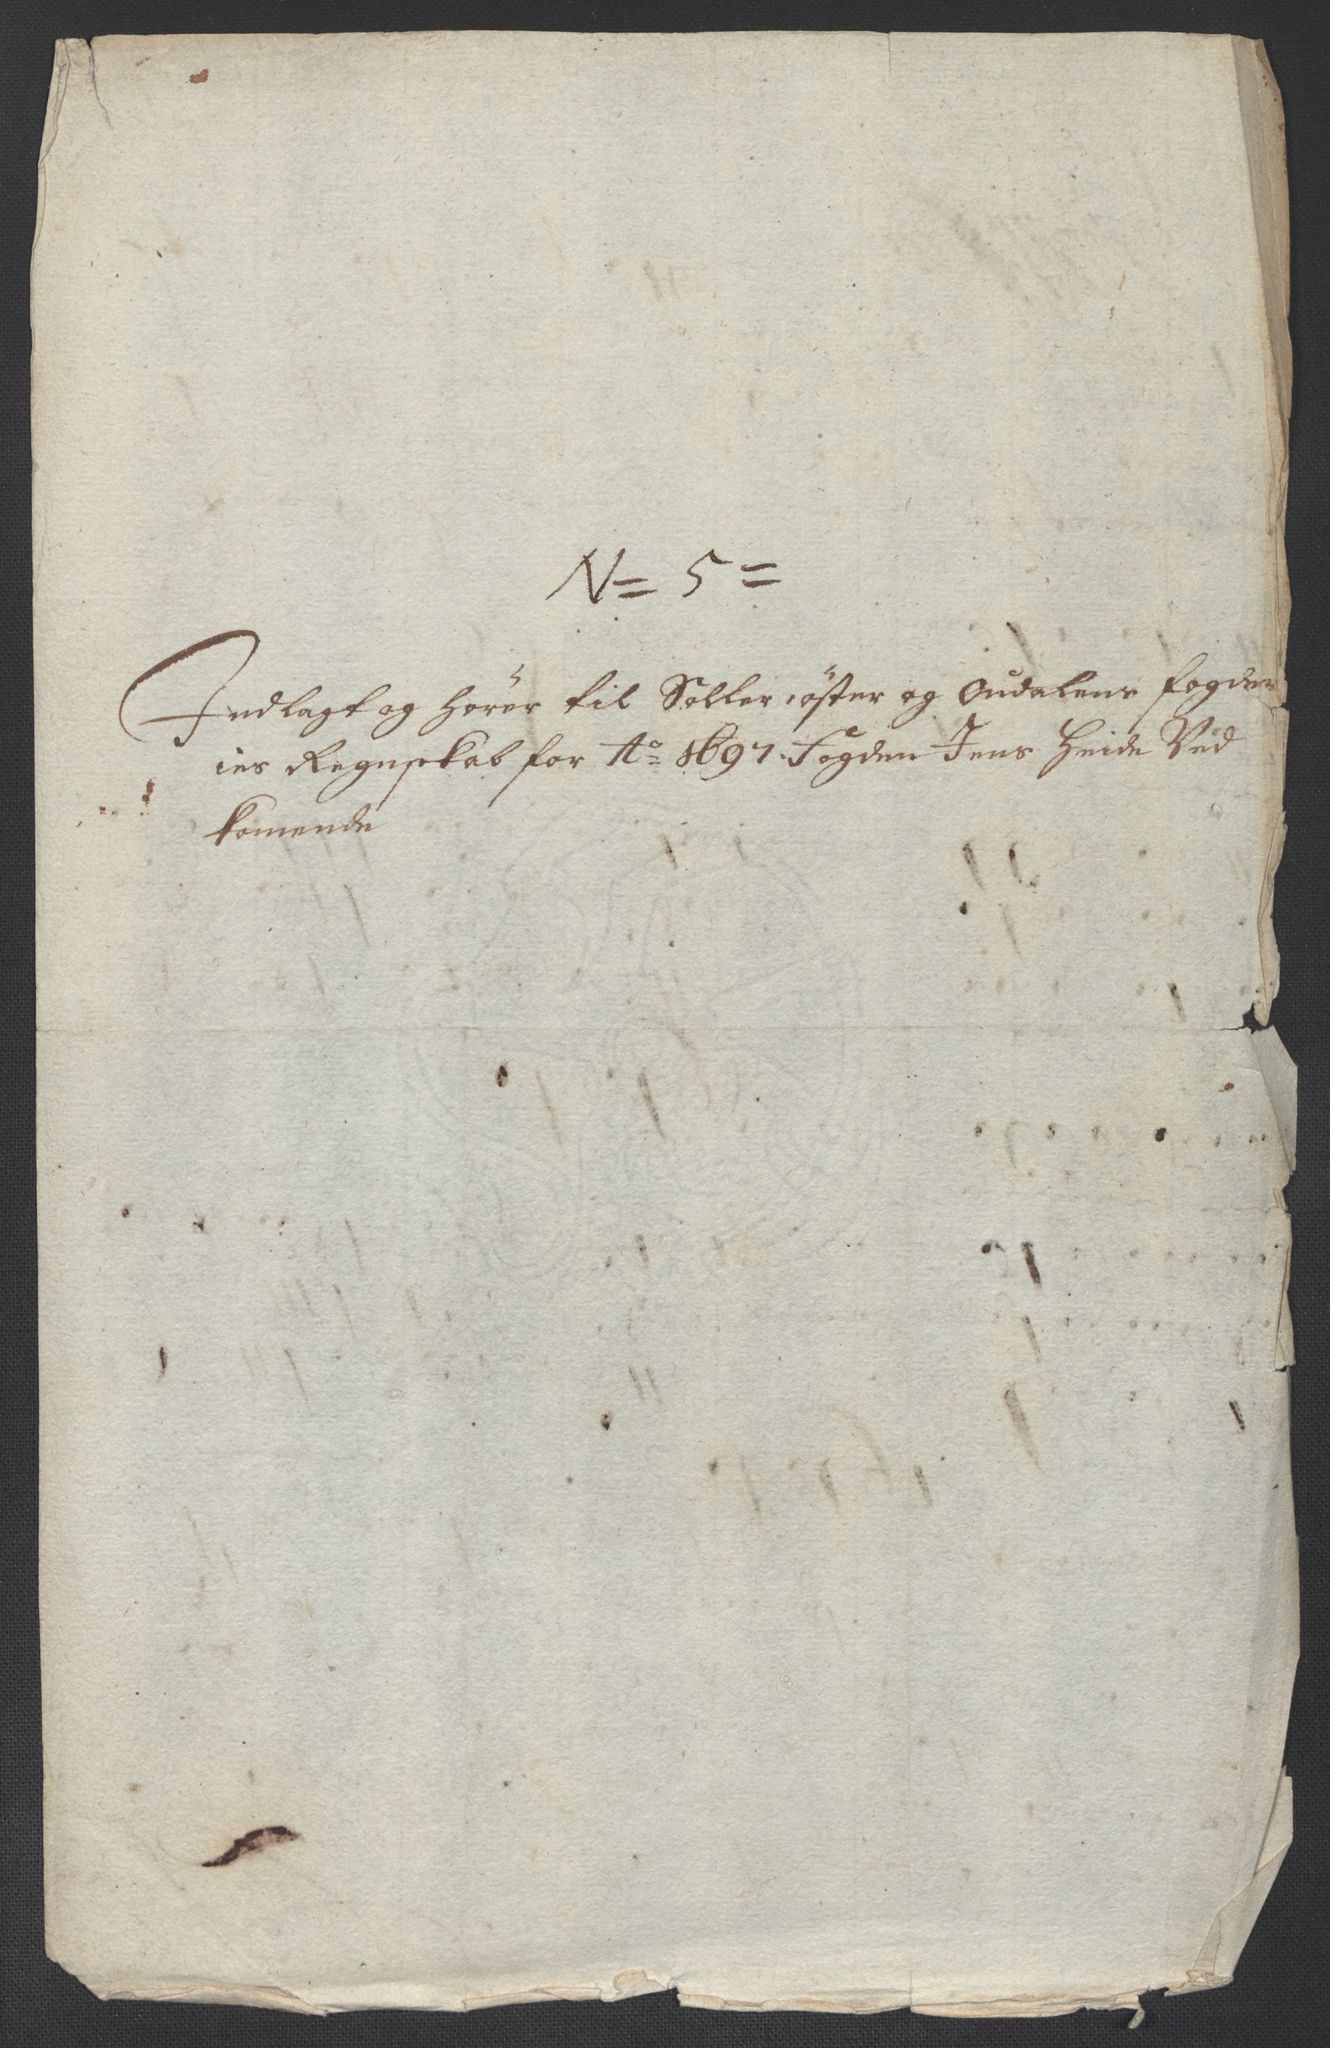 N= 5=
Indlagt og hörer til Soller :öster og Oudalens fogder
ies Regnskab for Ao 1697. Fogden Jens Heide Ved
komende